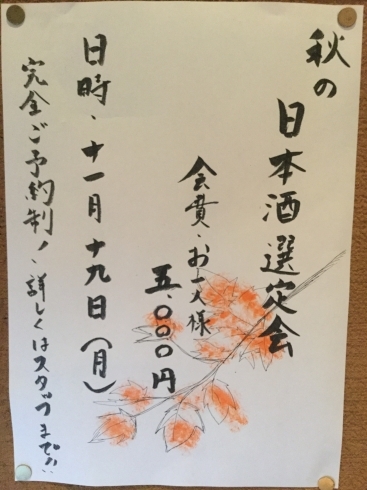 秋の
日本酒選定会
会費、お一人様
五、〇〇〇円
日時、十一月十九日（月）
完全ご予約制！、詳しくはスタッフまで!!